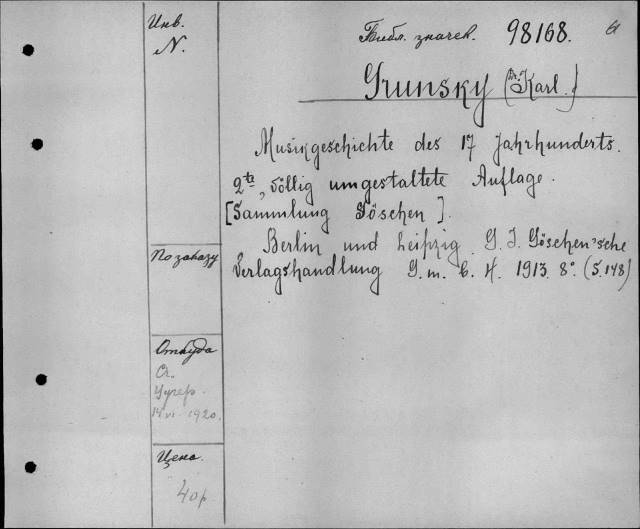 Инв.
N.
Библ. значек. 98168.
Grunsky (Dr. Karl.)
Musikgeschichte des 17 Jahrhunderts.
2te, völlig umgestaltete Auflage.
[Sammlung Göschen].
Berlin und Leipzig. G. J. Göschen'sche
Verlagshandlung G. m. b. H. 1913. 8°. (S. 148)
По заказу
Откуда
14 VI 1920.
Цена.
40 р